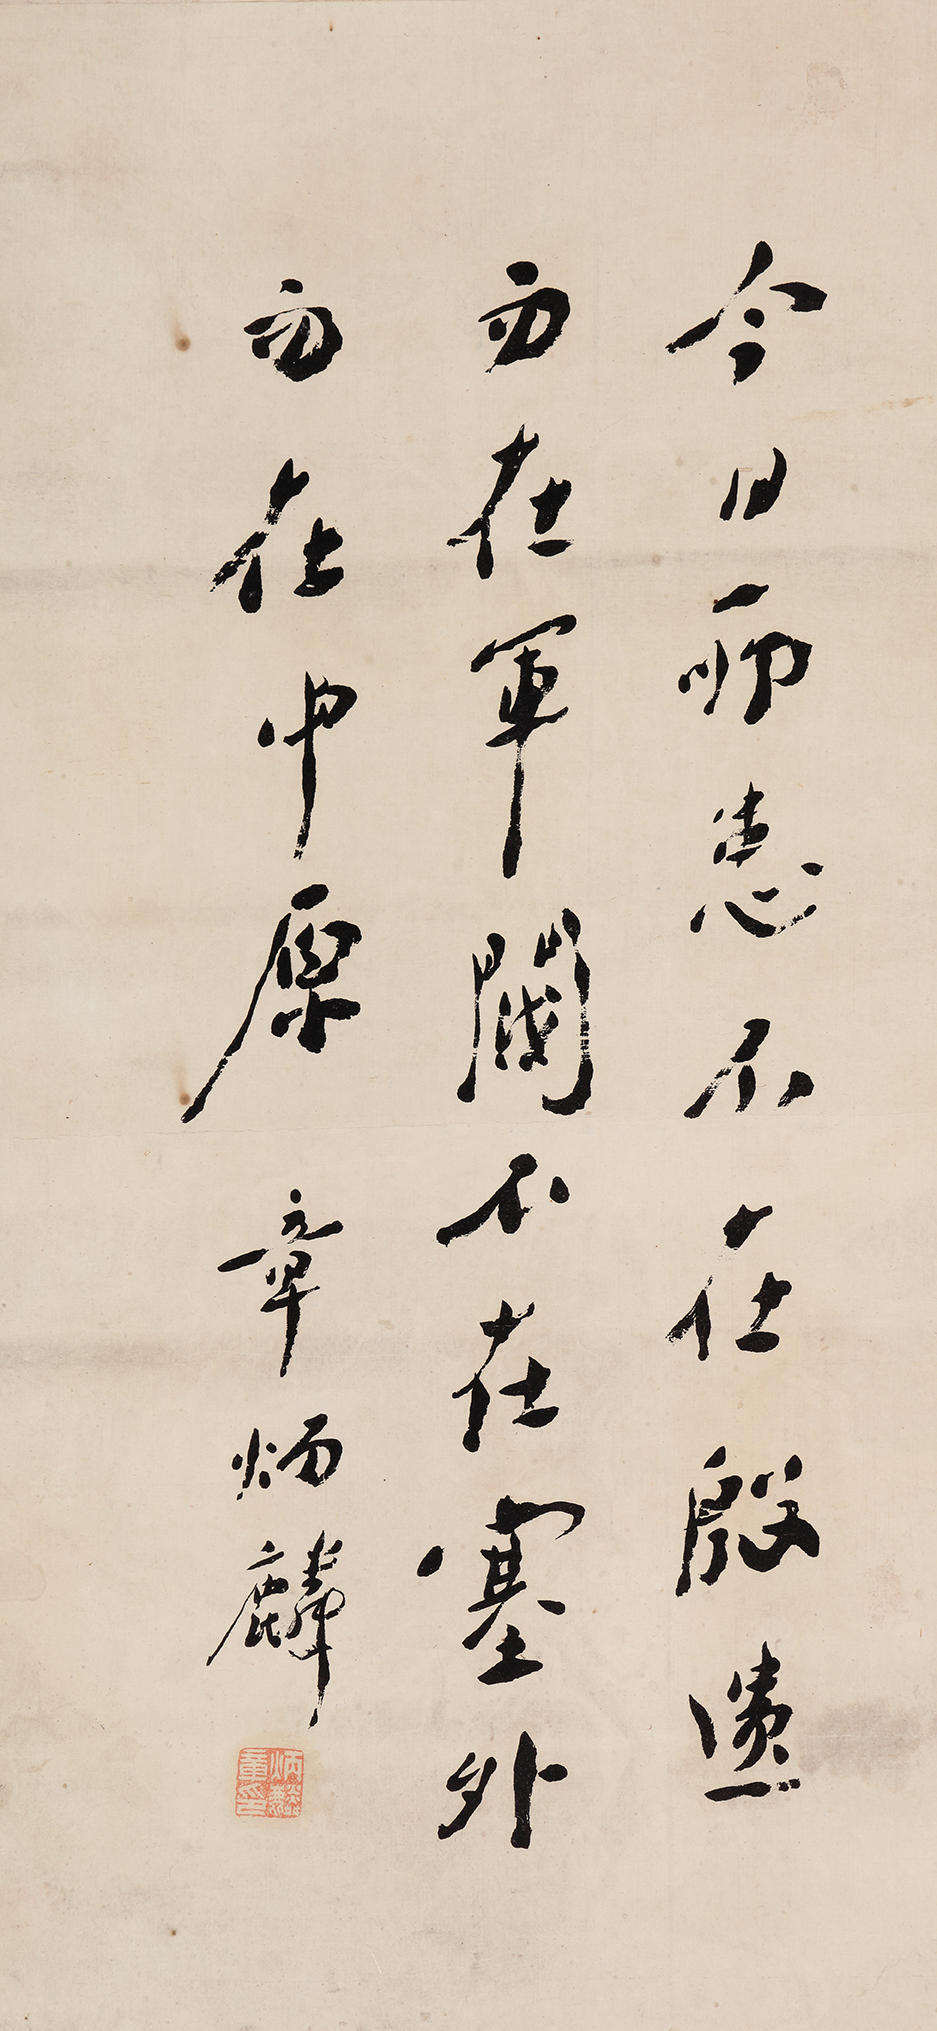 今日所患不在殷遺
而在軍閥不在塞外
而在中原 章炳麟
炳麟
章印